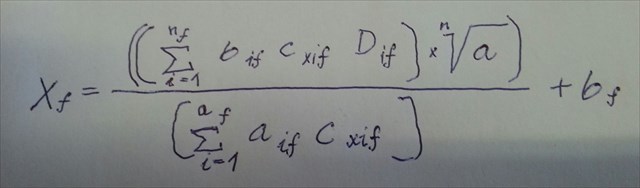 X_f = \frac{\left(\left(\sum_{i=1}^{n_f} b_{if} c_{xif} D_{if}\right) \times \sqrt[n]{a}\right)}{\left[\sum_{i=1}^{a_f} a_{if} c_{xif}\right]} + b_f